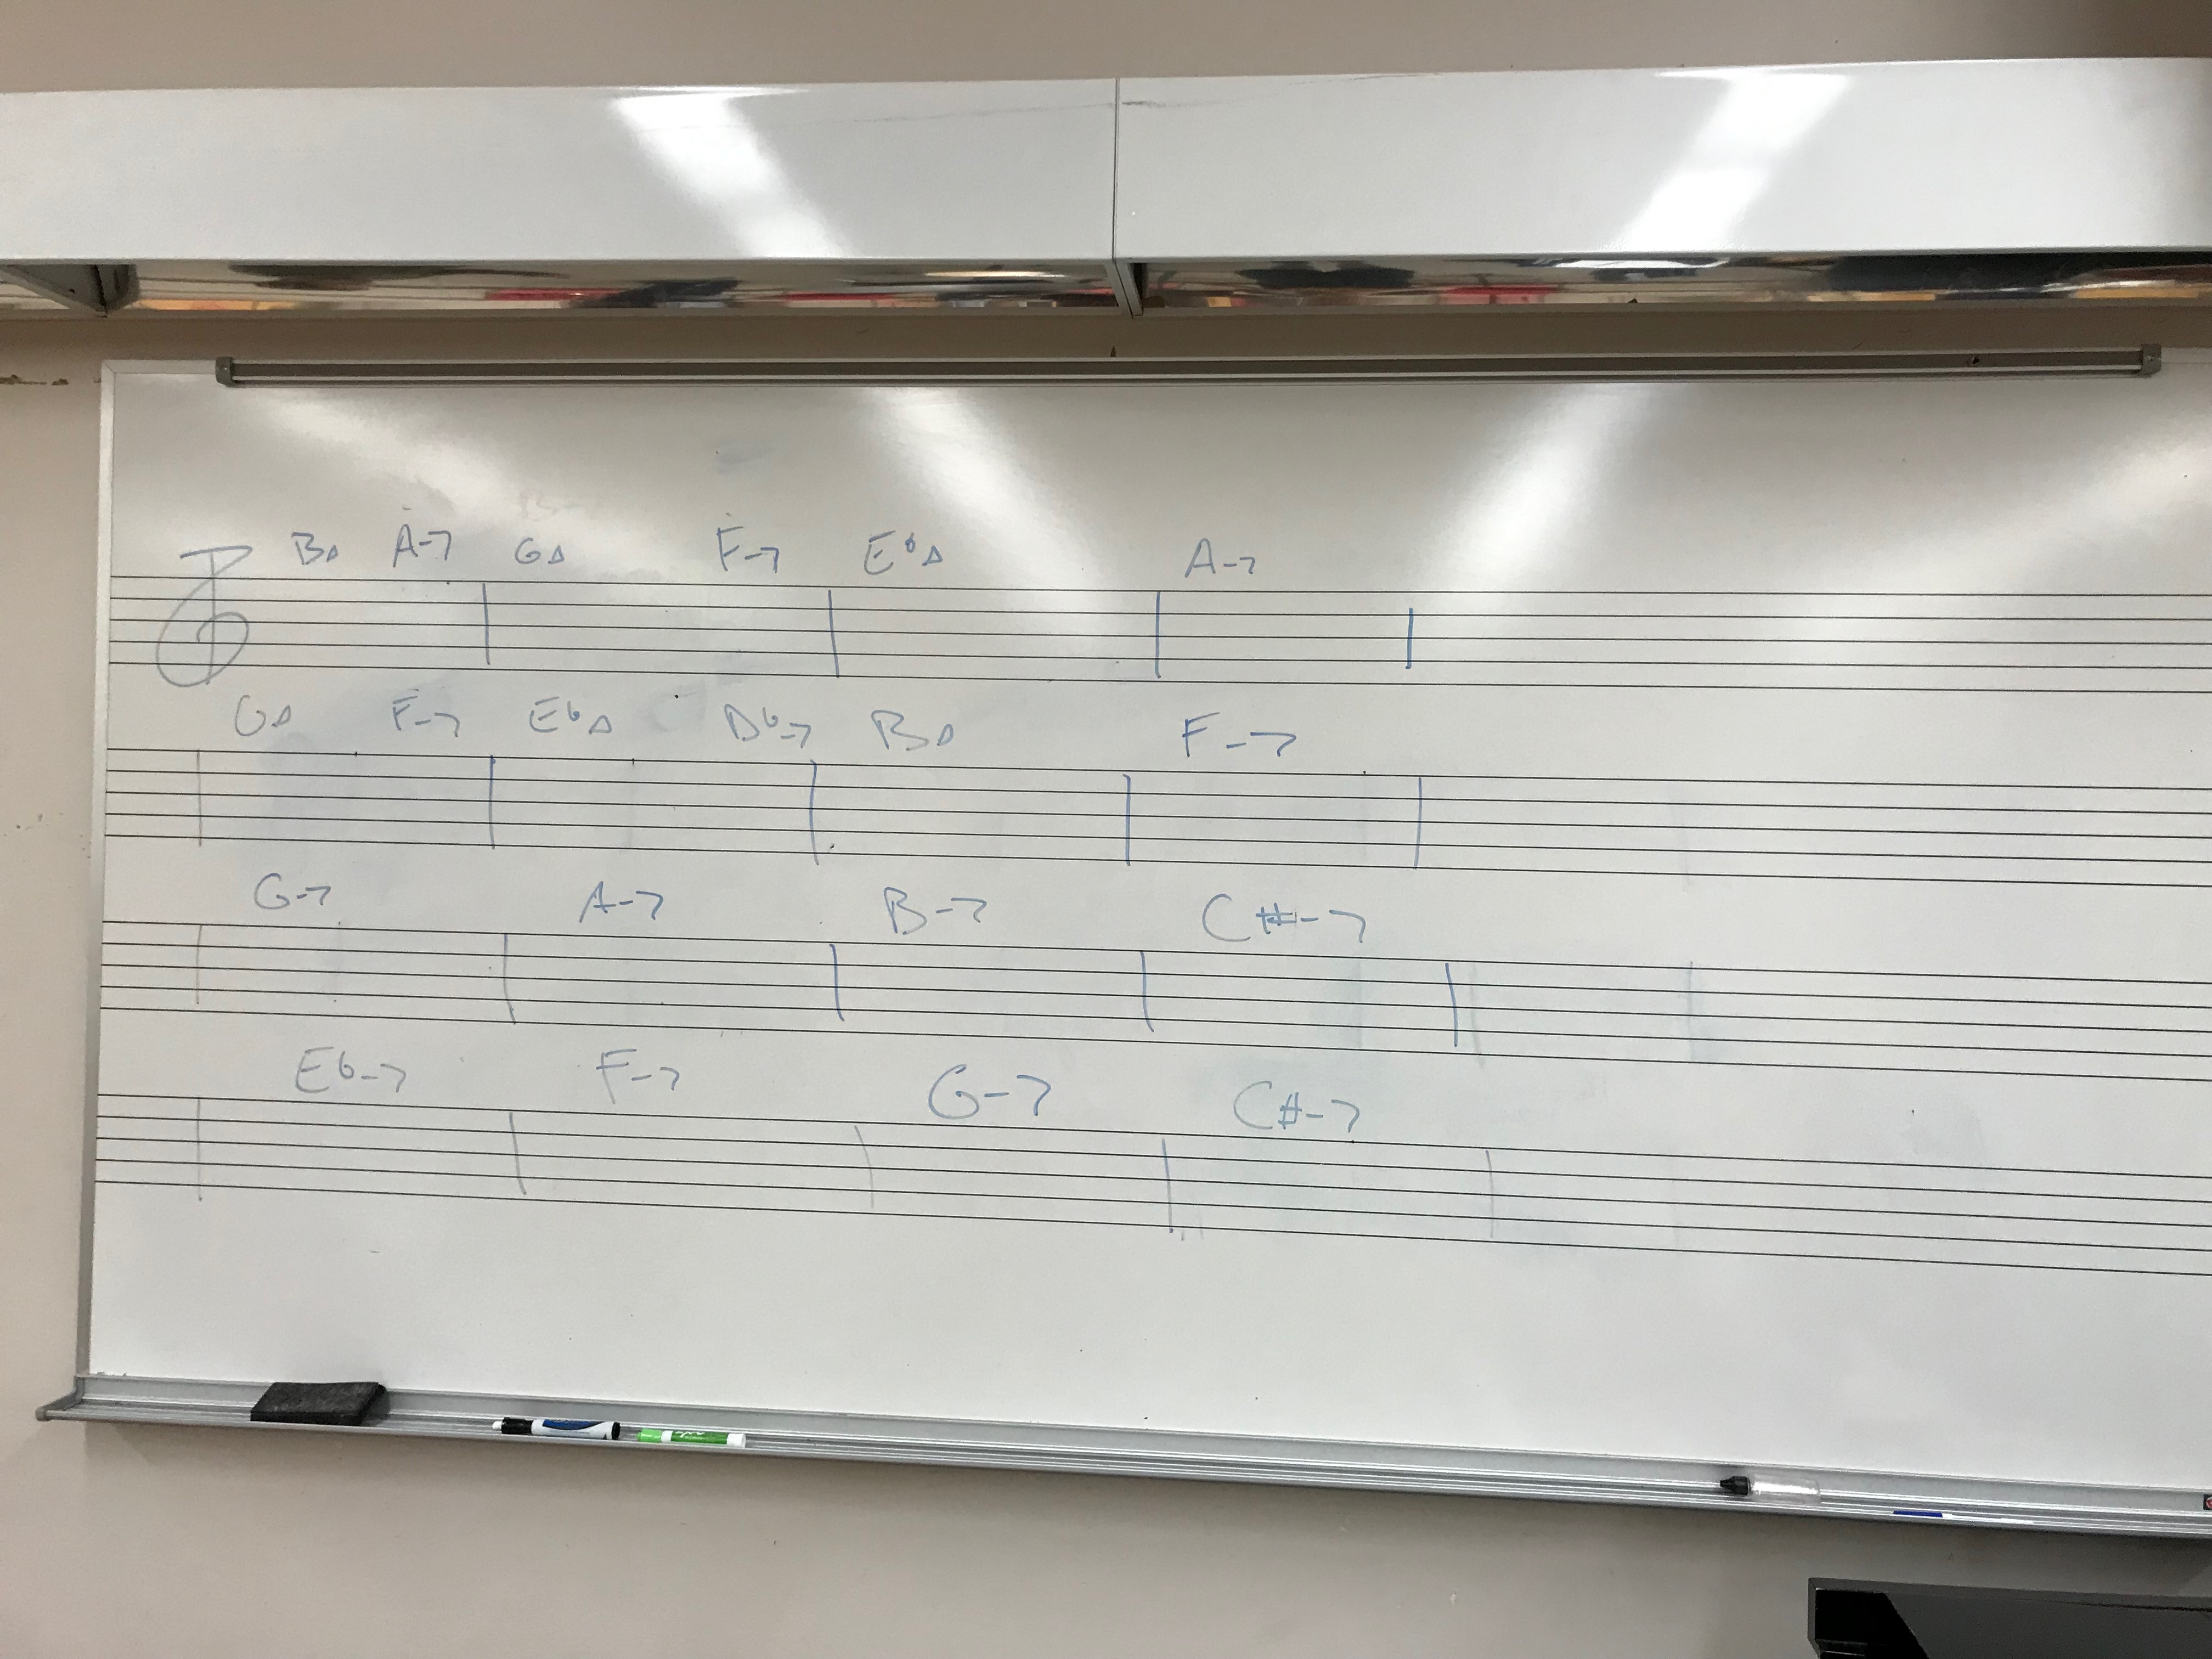 B△ A-7 G△ F-7 E♭△ A-7
G△ F-7 E♭△ D♭-7 B△ F-7
G-7 A-7 B-7 C#-7
E♭-7 F-7 G-7 C#-7